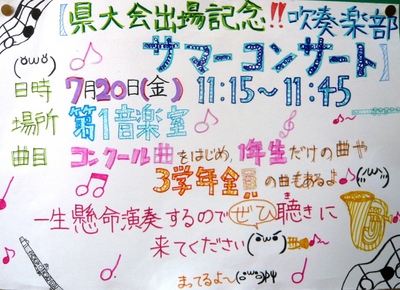 【県大会出場記念!!吹奏楽部
サマーコンサート】
日時 7月20日(金) 11:15～11:45
場所 第1音楽室
曲目 コンクール曲をはじめ、1年生だけの曲や
3学年全員の曲もあるよ♪
一生懸命演奏するのでぜひ聴きに
き
来てください
まってるよ〜